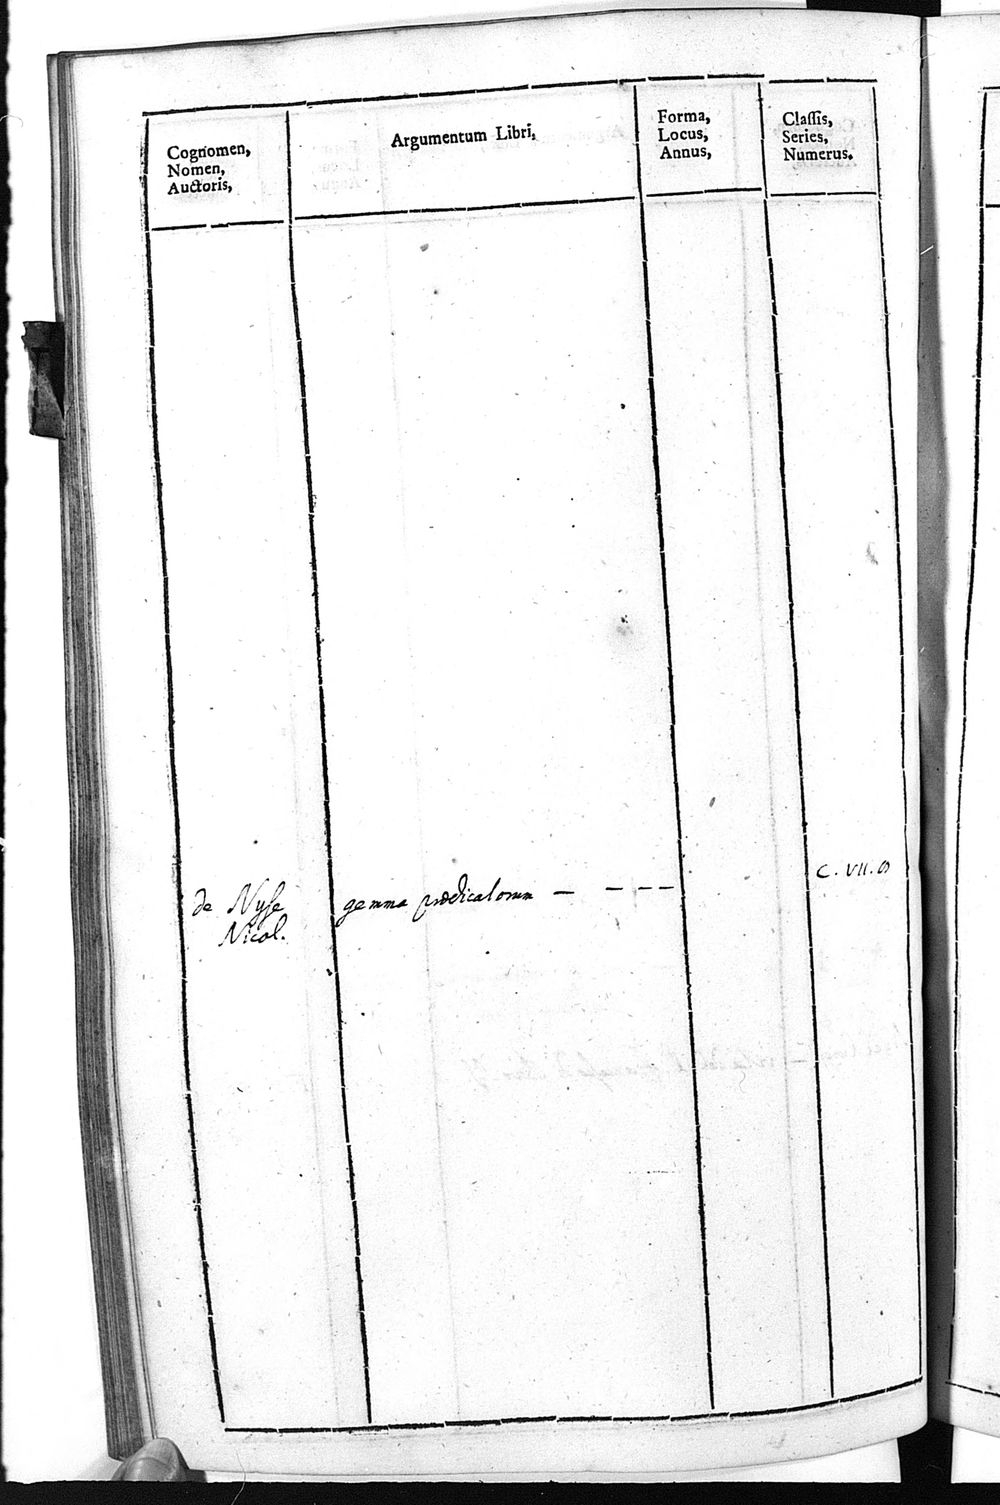 Cognomen,
Nomen,
Auctoris,
Argumentum Libri,
Forma,
Locus,
Annus,
Classis,
Series,
Numerus.
de Nyse
Nicol.
gemma prædicatorum — - - - -
C. VII.